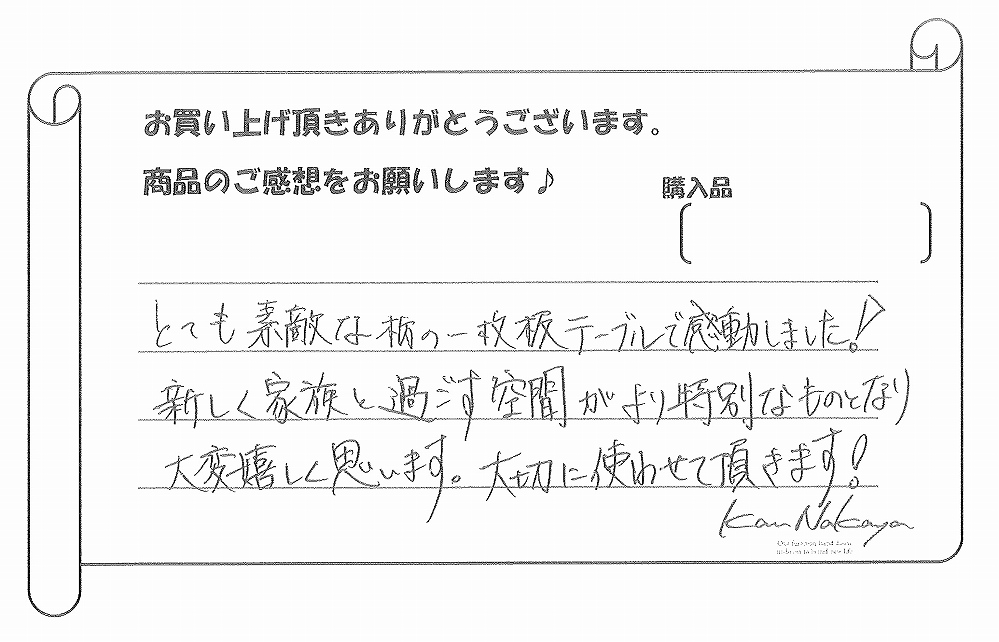 お買い上げ頂きありがとうございます。
商品のご感想をお願いします♪
購入品
とても素敵な栃の一枚板テーブルで感動しました!
新しく家族と過ごす空間がより特別なものとなり
大変嬉しく思います。大切に使わせて頂きます!
Kan Nakaya